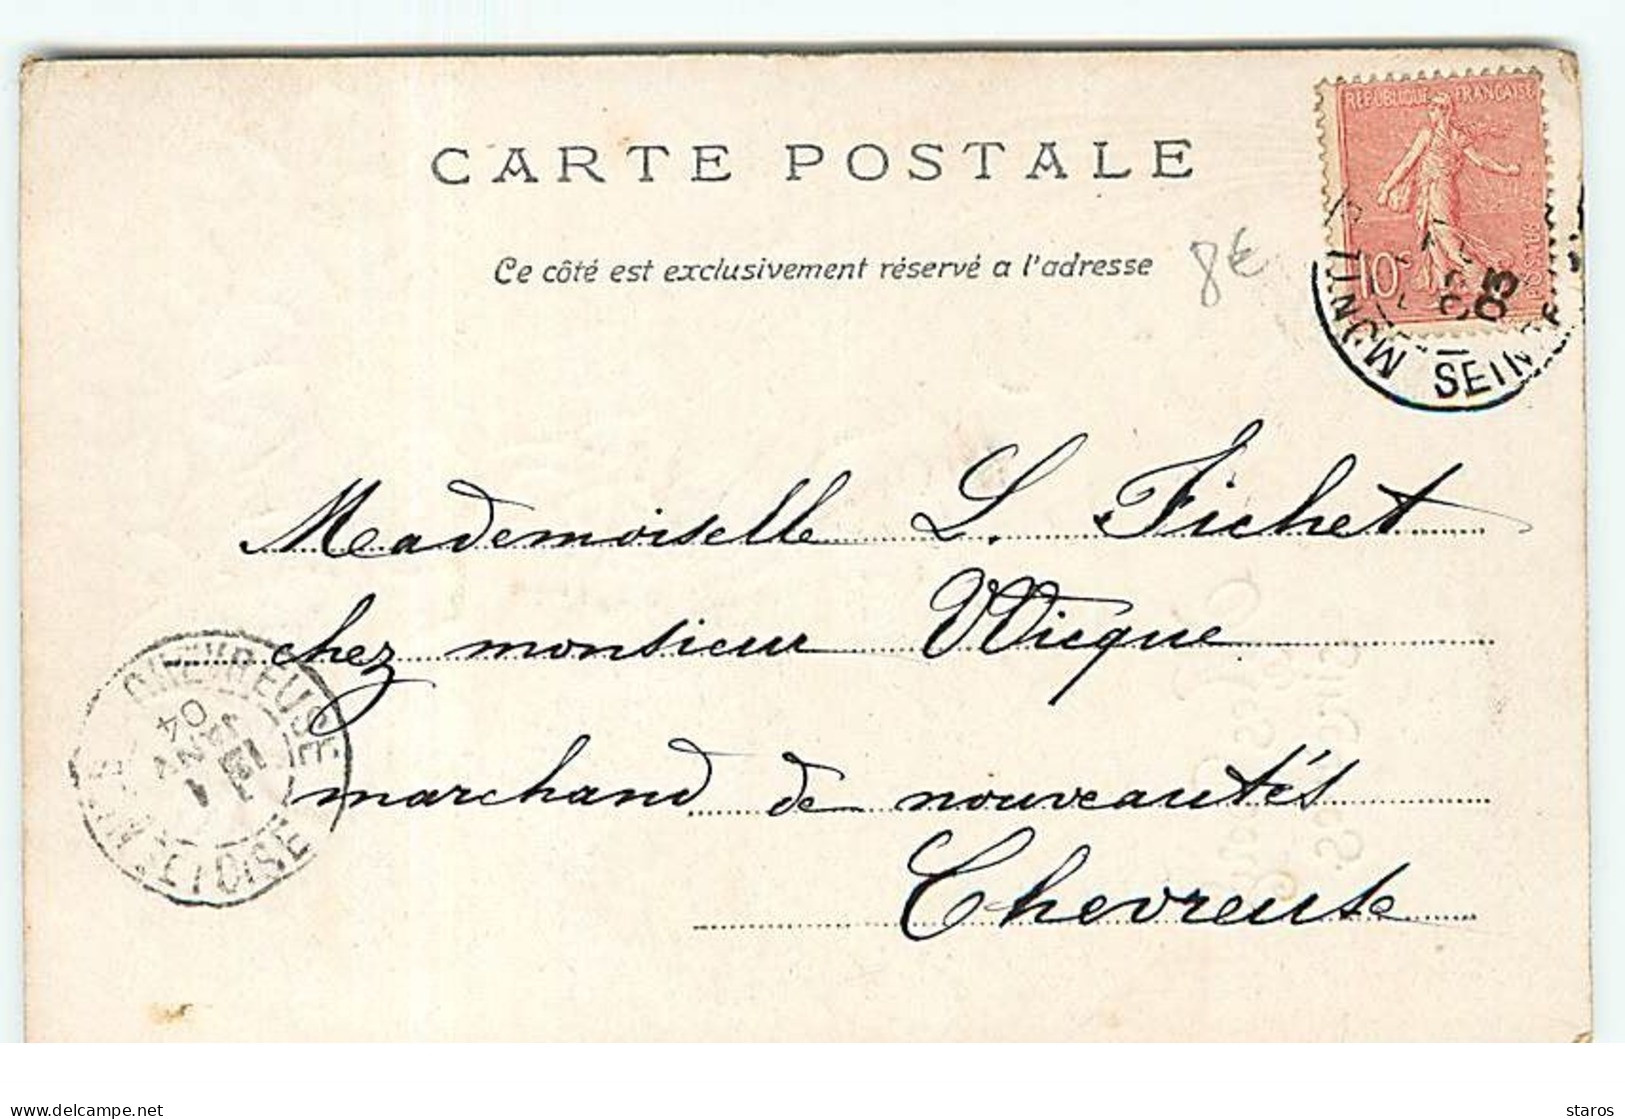 CARTE POSTALE
Ce côté est exclusivement réservé a l'adresse
8€
RÉPUBLIQUE FRANÇAISE
POSTES
10c
03
Mademoiselle L. Fichet
chez monsieur
marchand de nouveautés
Chevreuse
CHEVREUSE
04
ET OISE
delcampe.net
staros